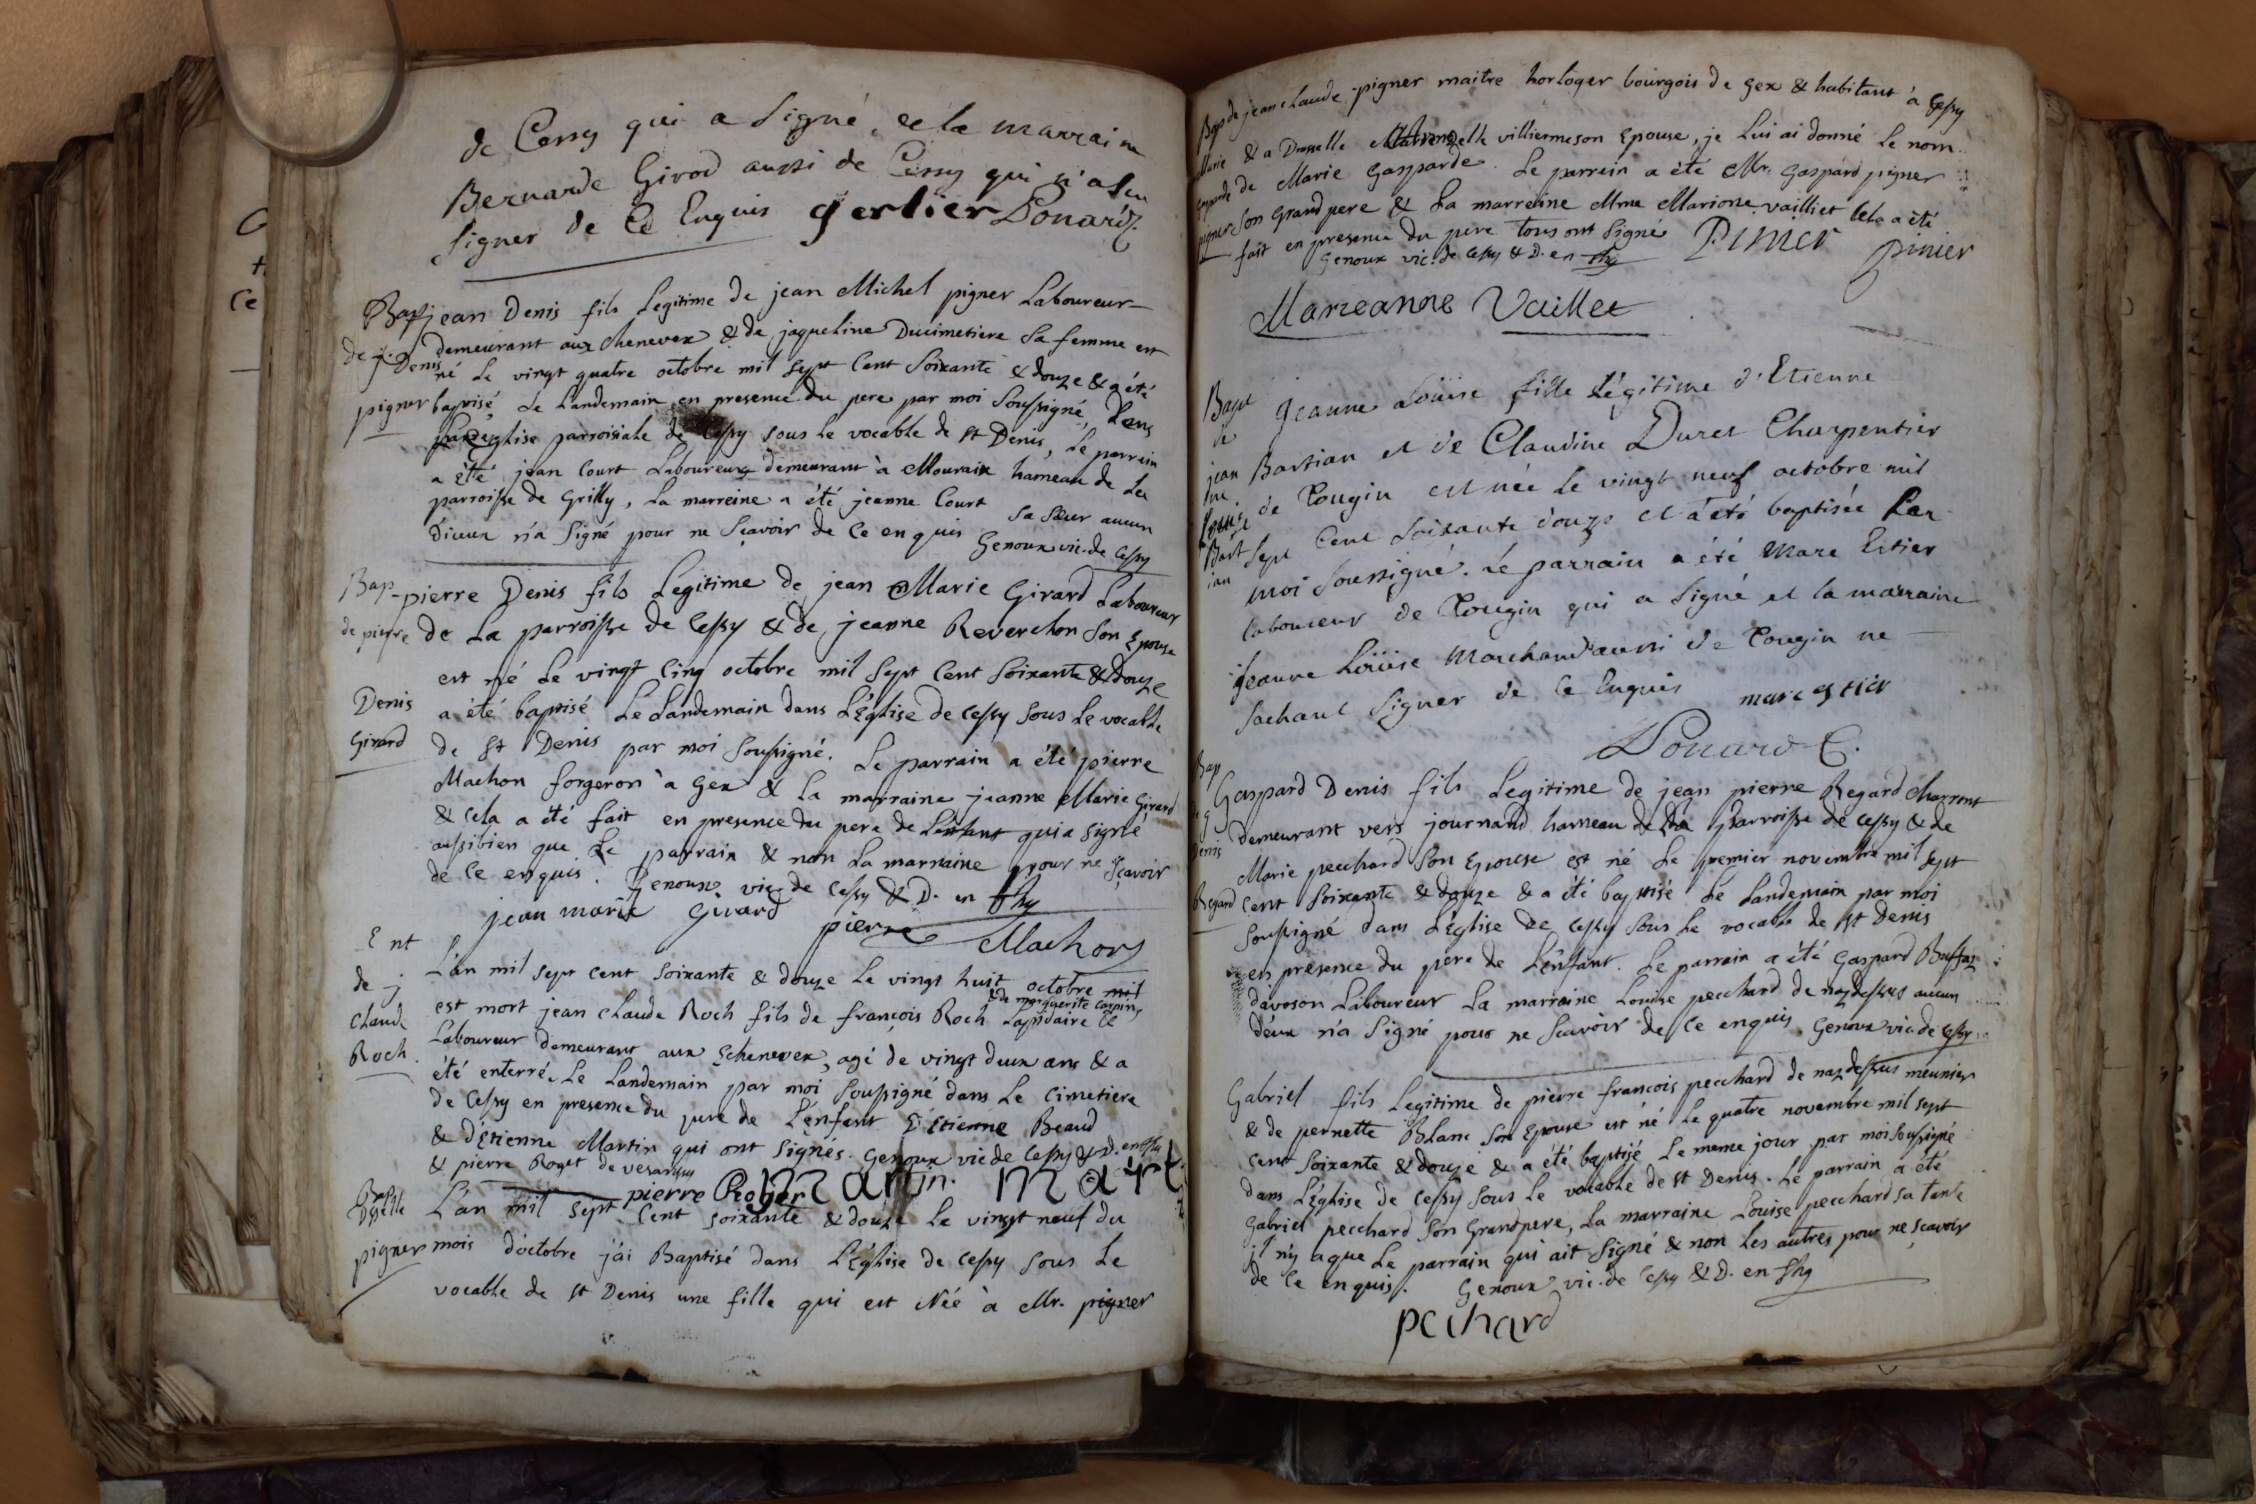 de Cessy qui a signé, et la marraine
Bernarde Girod aussi de Cessy qui n'a su
signer de ce Enquis gerlier Donard
Bap jean Denis fils Legitime de jean Michel pigner Laboureur
de j. Denis demeurant aux chenevex & de jaqueline Ducimetiere sa femme est
né Le vingt quatre octobre mil sept cent soixante & douze & a été
pigner baptisé Le Landemain en presence du pere par moi soussigné, Dans
eglise parroisiale de Cessy sous le vocable de st Denis, Le parrein
a été jean Court Laboureur demeurant à Mourain hameau de La
parroisse de Grilly, La marreine a été jeanne Court sa sœur aucun
d'iceux n'a signé pour ne sçavoir de ce enquis Genoux vic. de Cessy
Bap pierre Denis fils Legitime de jean Marie Girard Laboureur
de pierre de La parroisse de Cessy & de jeanne Reverchon son Epouse
est né Le vingt cinq octobre mil sept cent soixante & douze
Denis a été baptisé Le Landemain dans L'Eglise de Cessy sous Le vocable
Girard de st Denis par moi soussigné. Le parrain a été pierre
Machon forgeron à Gex & La marraine jeanne Marie Girard
& cela a été fait en presence du pere de L'enfant qui a signé
aussibien que Le parrain & non La marraine pour ne sçavoir
de ce enquis. Genoux vic. de Cessy & D. en
jean marie Girard pierre Machon
Ent L'an mil sept cent soixante & douze Le vingt huit octobre mil
de j est mort jean claude Roch fils de françois Roch Lapidaire & de marguerite
claude Laboureur demeurant aux Echenevex, agé de vingt deux ans & a
Roch été enterré Le Landemain par moi soussigné dans Le cimetiere
de Cessy en presence du pere de L'enfant Etienne Beaud
& d'Etienne Martin qui ont signés. Genoux vic de Cessy & D. en
& pierre Roget de
pierre Roget martin. mart
Bap Dselle L'an mil sept cent soixante & douze Le vingt neuf du
pigner mois d'octobre j'ai Baptisé dans L'Eglise de Cessy sous Le
vocable de st Denis une fille qui est Née à Mr. pigner
Bap de jean claude pigner maitre horloger bourgois de Gex & habitant à Cessy
Marie & a Dmselle villierme son Epouse, je Lui ai donné Le nom
Gasparde de Marie Gasparde. Le parrein a été Mr. Gaspard pigner
pigner son Grand pere & La marreine Mme Marione vailliet Cela a été
fait en presence du pere tous ont signé Pinier pinier
Genoux vic. de Cessy & D. en
Marieanne Vaillet
Bapt Jeanne Loüise fille Légitime d'Etienne
de
jean Bastian et de Claudine Duret Charpentier
ne de Tougin est née le vingt neuf octobre mil
Louise
Bast sept cent soixante douze et a été baptisée Par
ian moi soussigné. Le parrain a été Marc Estier
laboureur de Tougin qui a signé et la marraine
Jeanne Loüise Marchand aussi de Tougin ne
sachant signer de ce Enquis marc estier
Donard C.
Bap Gaspard Denis fils Legitime de jean pierre Regard
g
Denis demeurant vers journand hameau de La parroisse de Cessy & de
Marie pecchard son Epouse est né Le premier novembre mil sept
Regard cent soixante & douze & a été baptisé Le Landemain par moi
soussigné dans L'église de Cessy sous Le vocable de st Denis
en presence du pere de L'enfant. Le parrain a été Gaspard Buffaz
d'avoson Laboureur La marraine Louise pecchard de nazdessus aucun
d'eux n'a signé pour ne sçavoir de ce enquis. Genoux vic de Cessy
Gabriel fils Legitime de pierre francois pecchard de nazdessus meunier
& de pernette Blanc son Epouse est né Le quatre novembre mil sept
cent soixante & douze & a été baptisé Le meme jour par moi soussigné
dans L'église de Cessy sous Le vocable de st Denis. Le parrain a été
Gabriel pecchard son Grandpere, La marraine Louise pecchard sa tante
il n'y a que Le parrain qui ait signé & non Les autres pour ne sçavoir
de ce enquis. Genoux vic. de Cessy & D. en
pechard